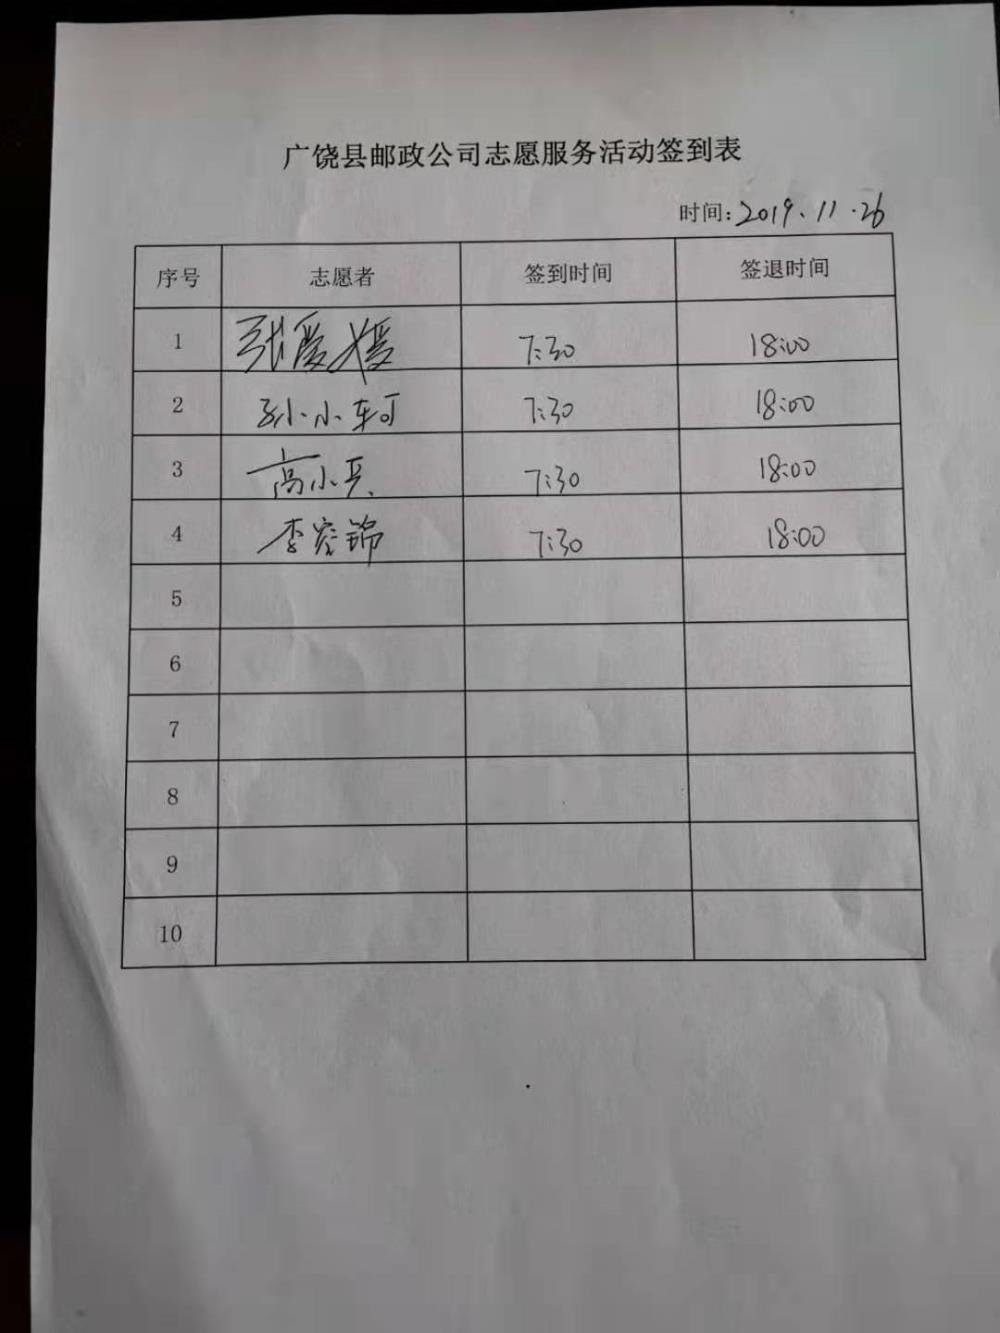 广饶县邮政公司志愿服务活动签到表
时间:2019.11.26
序号 志愿者 签到时间 签退时间
1 张爱媛 7:30 18:00
2 孙小轲 7:30 18:00
3 高小兵 7:30 18:00
4 李容锦 7:30 18:00
5
6
7
8
9
10